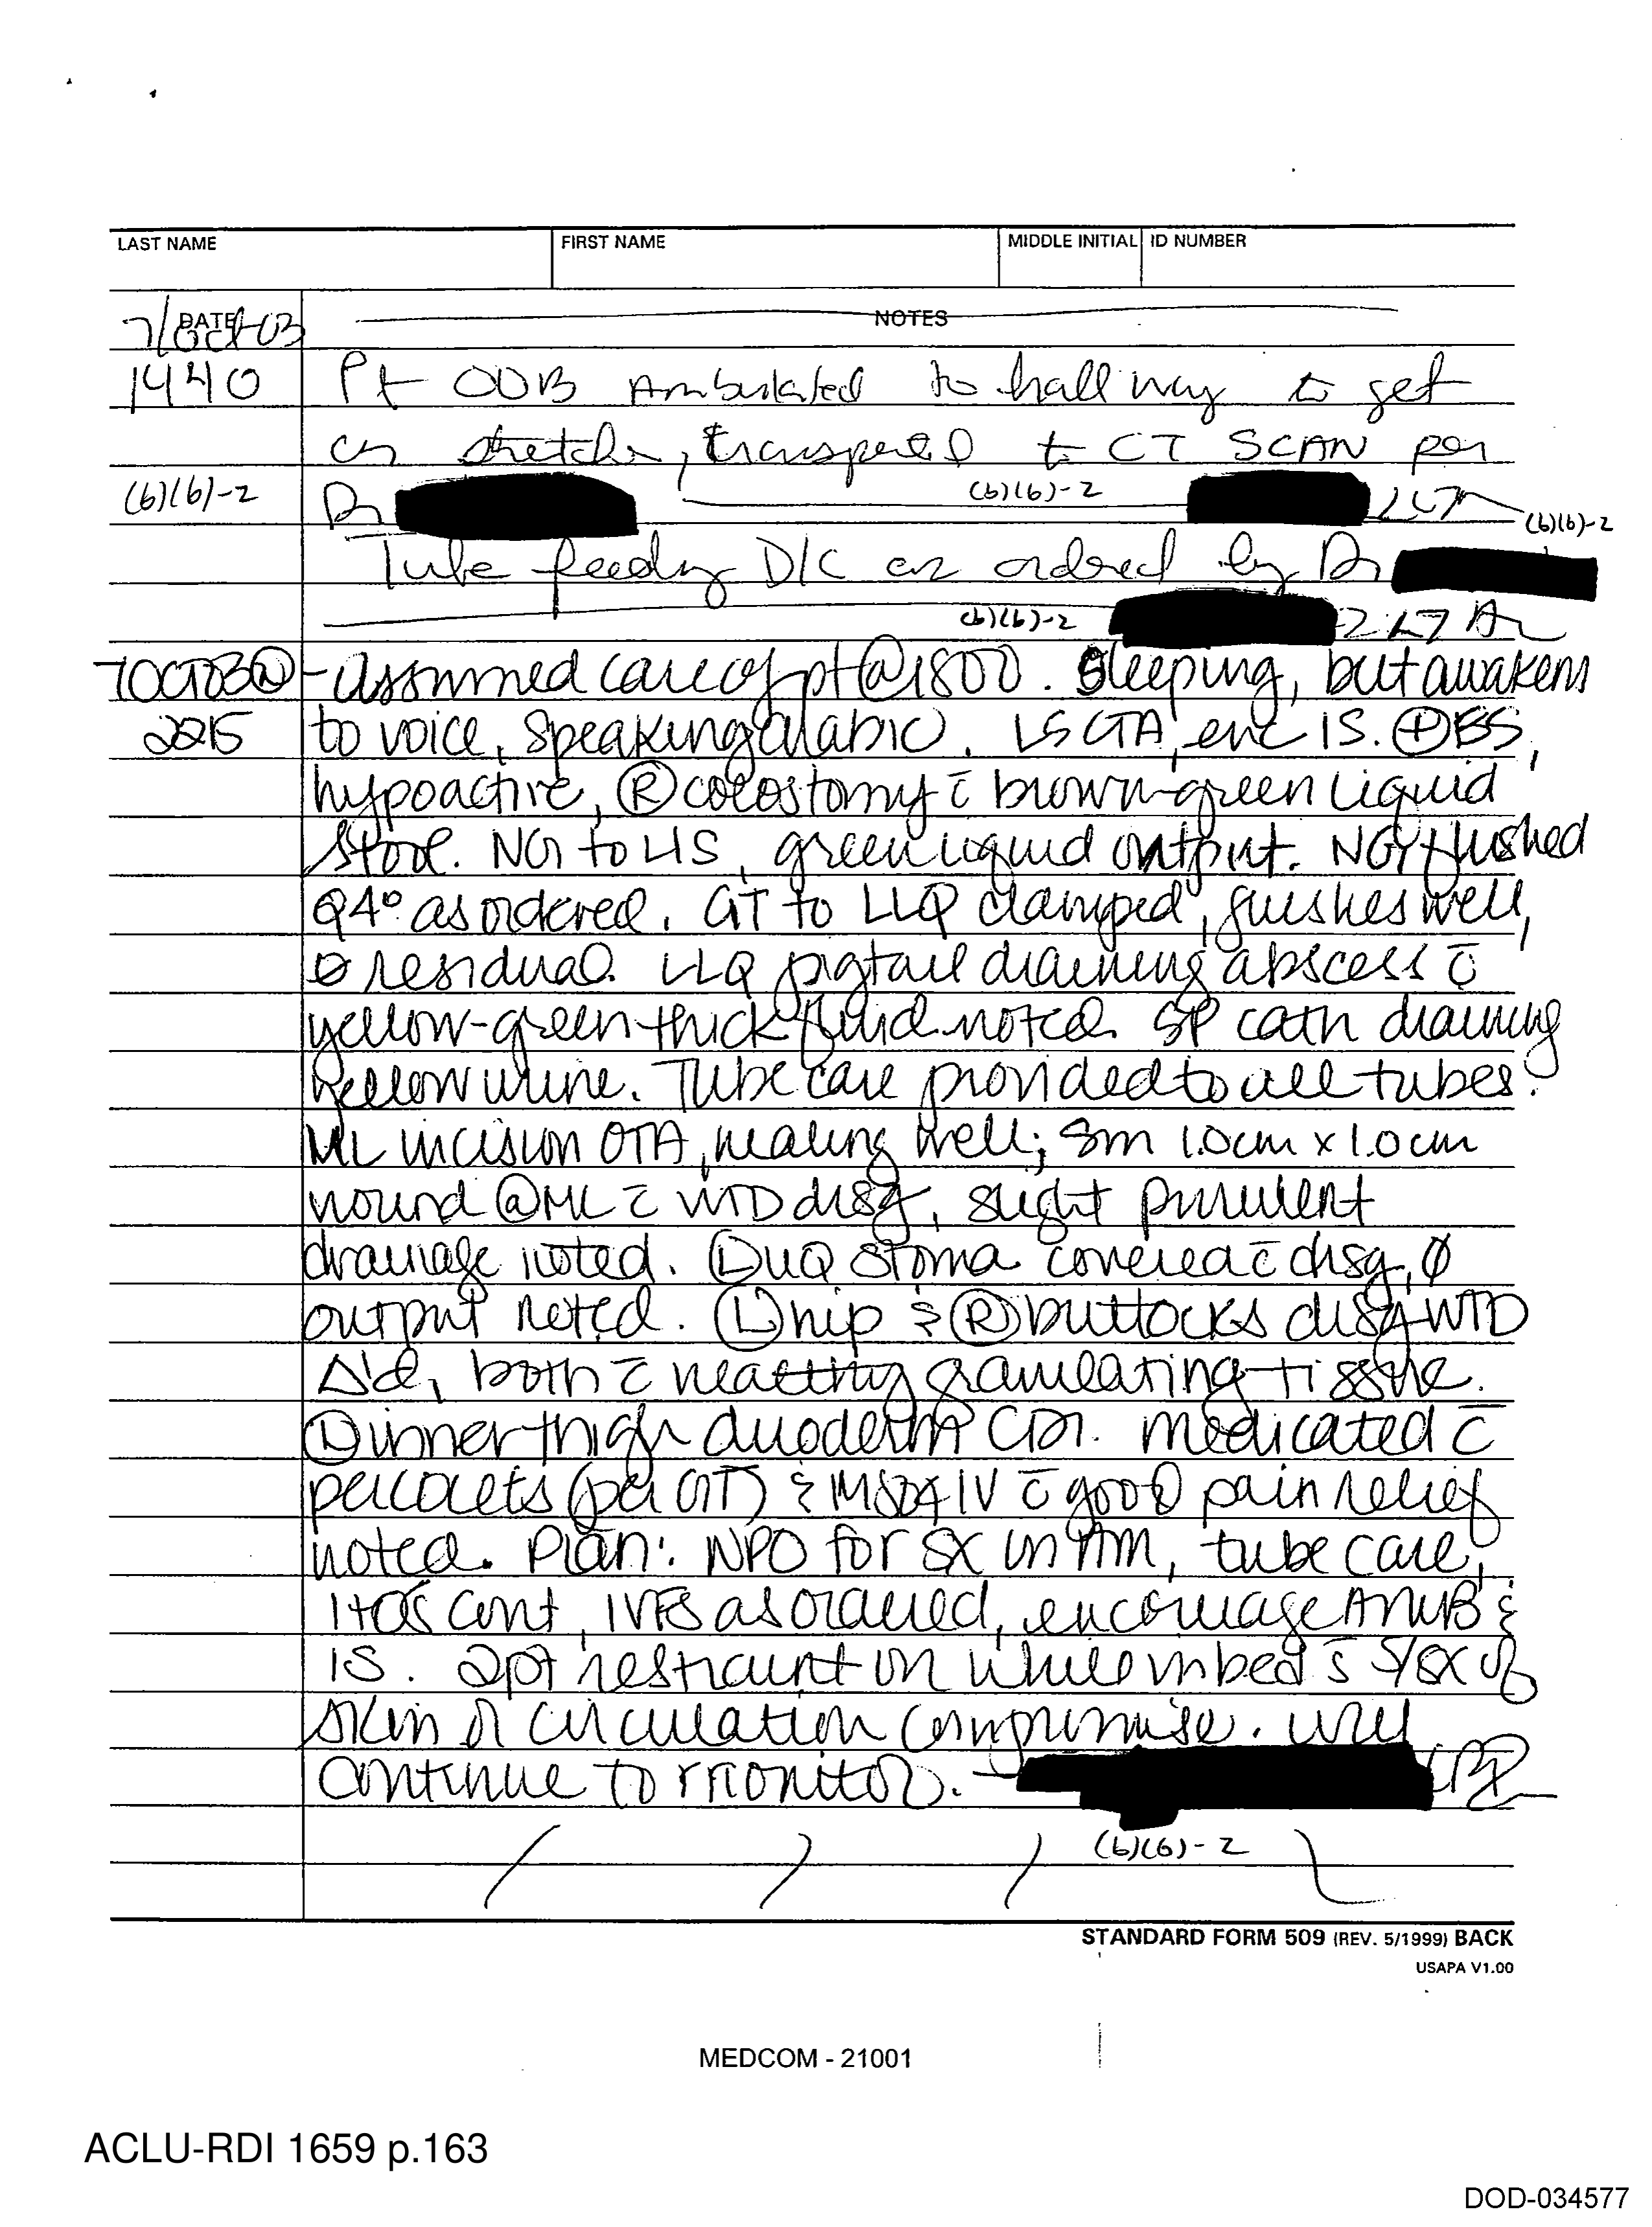 LAST NAME FIRST NAME MIDDLE INITIAL ID NUMBER
7/Oct 03 DATE NOTES
1440 Pt OOB Ambulated to hallway to get
on stretcher, transpered to CT SCAN per
(b)(6)-2 Dr (b)(6)-2
(b)(6)-2
Tube feeding D/C as ordered by Dr
(b)(6)-2
7OCT03@ - assumed care of pt @1800. Sleeping, but awakens
2215 to voice, speaking arabic. LS CTA, enc IS. ⊕BS,
hypoactive, Ⓡ colostomy c̄ brown-green liquid
stool. NG to LIS, green liquid output. NGT flushed
Q4° as ordered. GT to LLQ clamped, flushes well,
ø residual. LLQ pigtail draining abscess c̄
yellow-green thick fluid noted. SP cath draining
yellow urine. Tube care provided to all tubes.
ML incision OTA, healing well; sm 1.0cm x 1.0cm
wound @ML c̄ WTD drsg, slight purulent
drainage noted. Ⓛ UQ stoma covered c̄ drsg, ø
output noted. Ⓛ hip & Ⓡ buttocks drsg WTD
Δ'd, both c̄ healthy granulating tissue.
Ⓛ inner thigh duoderm CDI. Medicated c̄
percocets (per GT) & MSO4 IV c̄ good pain relief
noted. Plan: NPO for SX in AM, tube care,
I+O's cont, IVFs as ordered, encourage AMB &
IS. 2pt restraint on while in bed s̄ S/SX of
skin or circulation compromise. Will
continue to monitor.
(b)(6)-2
STANDARD FORM 509 (REV. 5/1999) BACK
USAPA V1.00
MEDCOM - 21001
ACLU-RDI 1659 p.163
DOD-034577